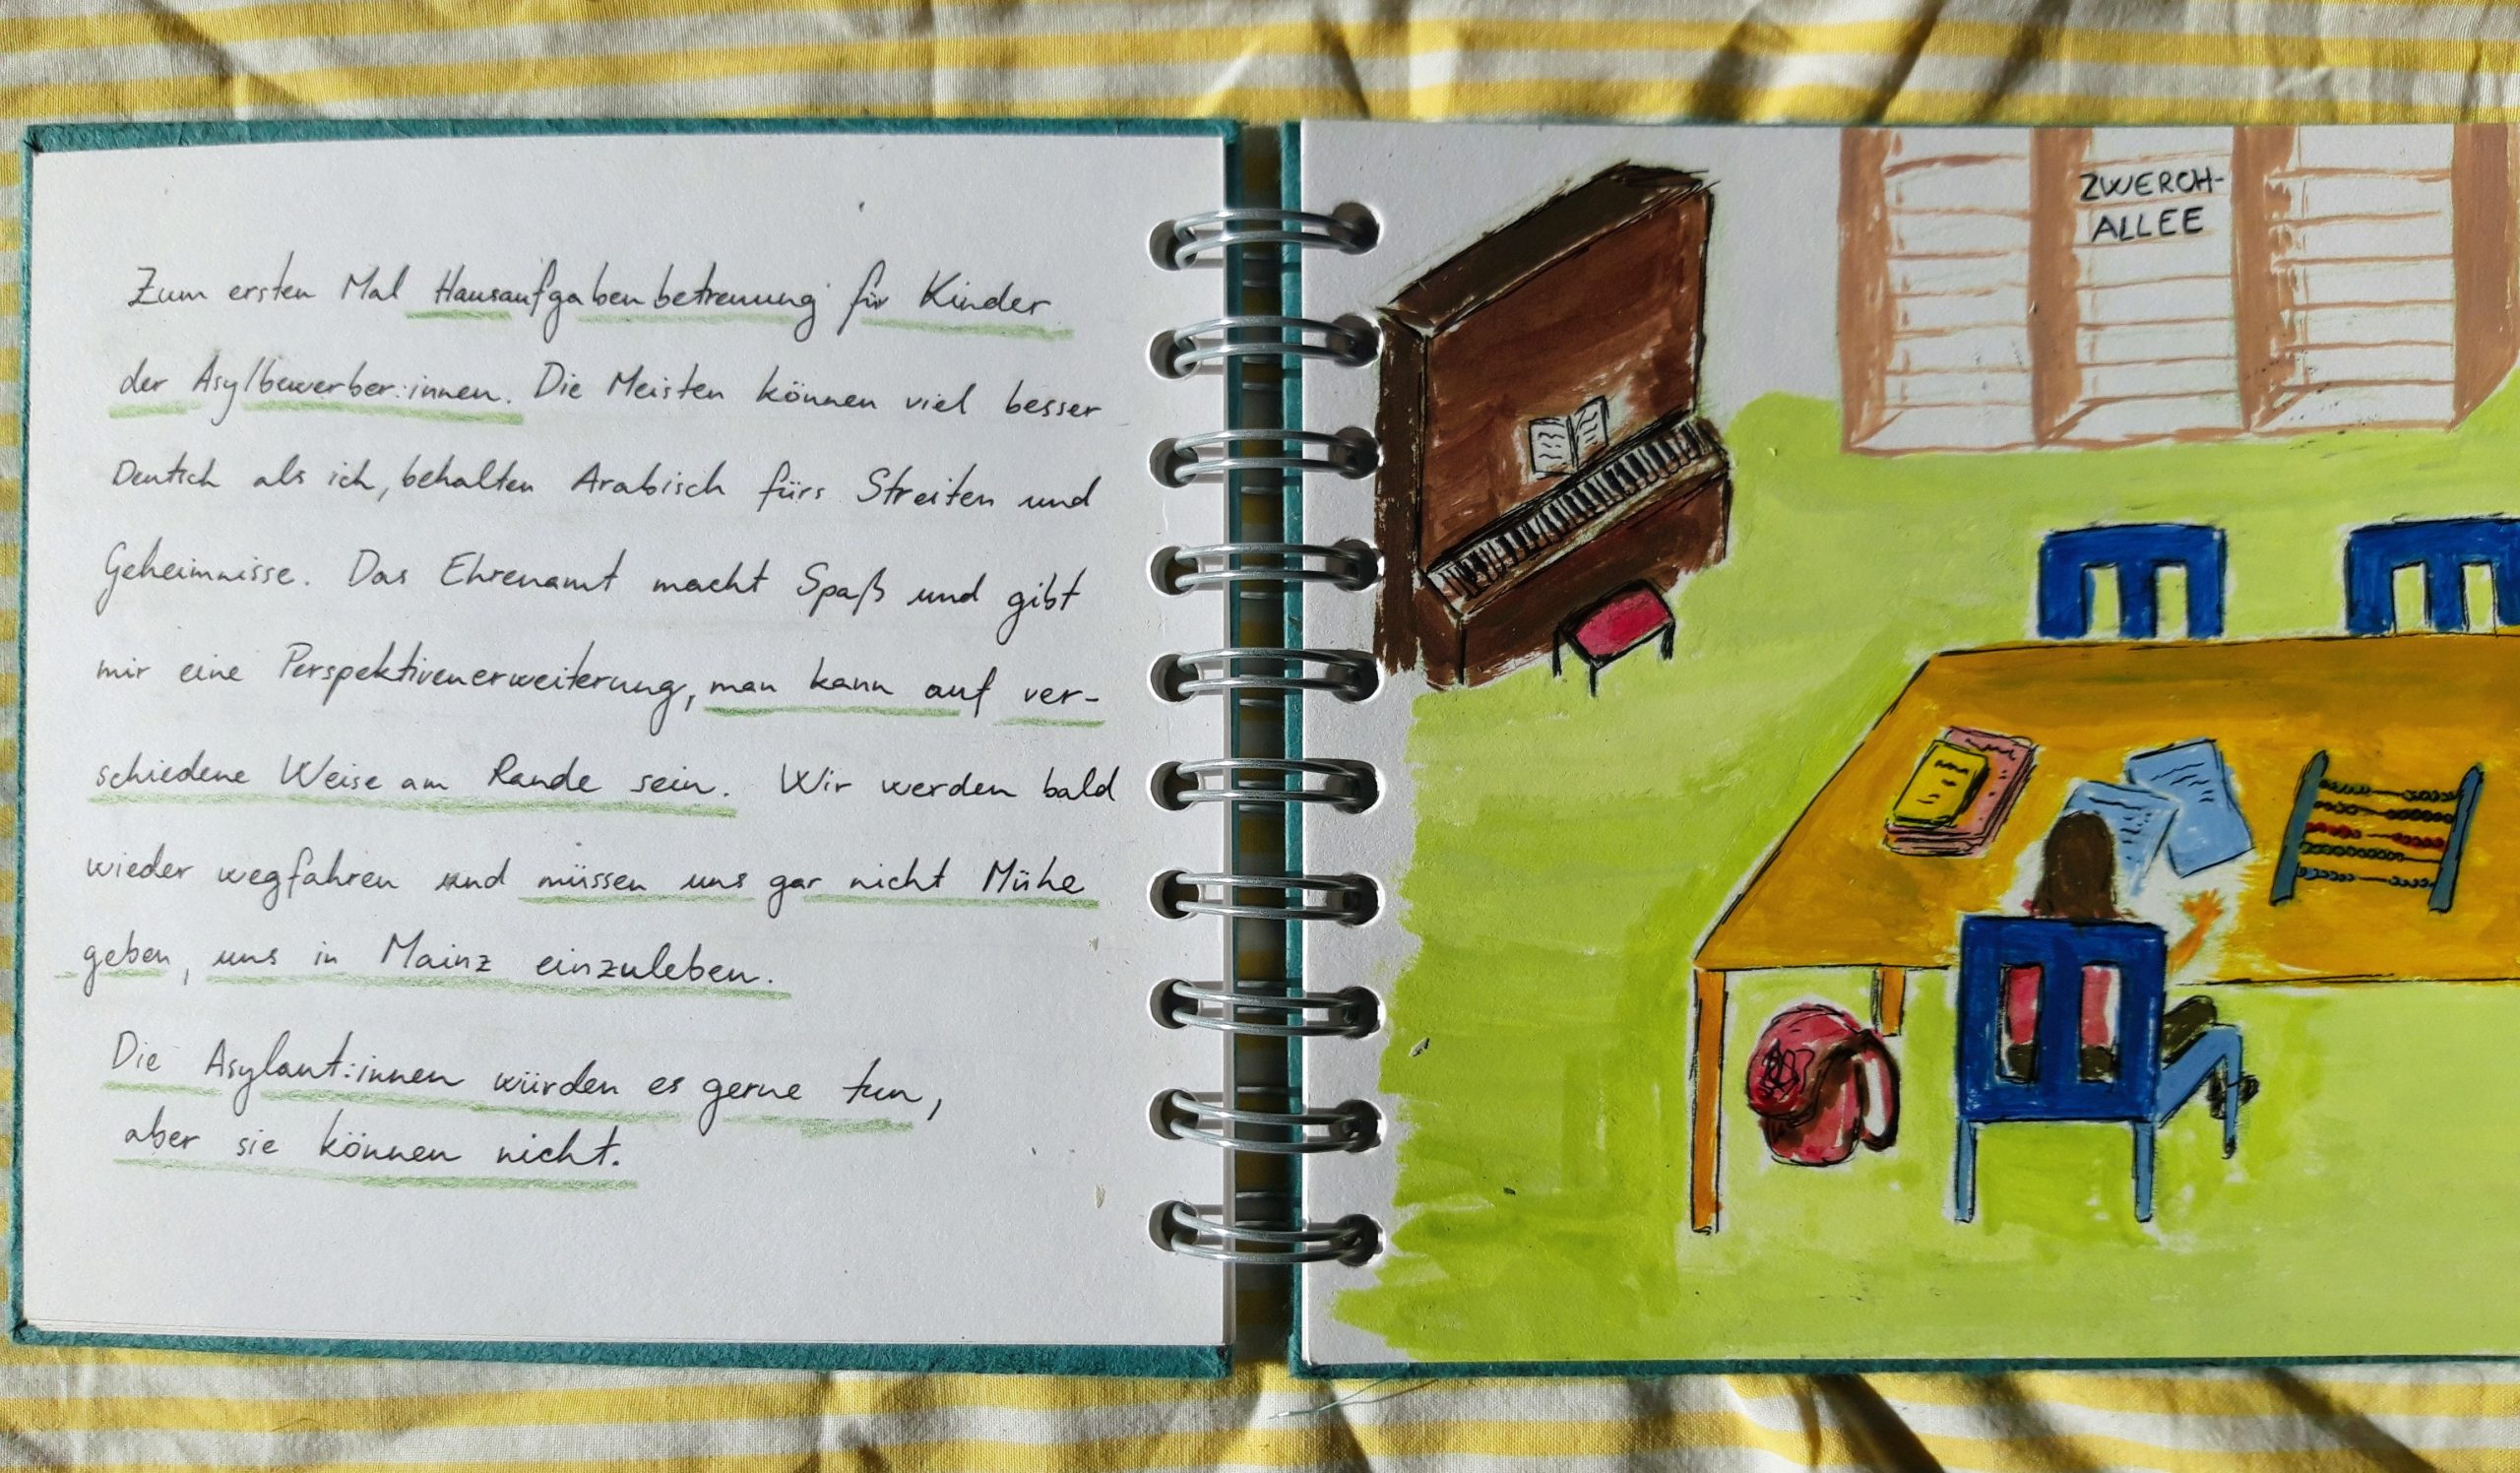 Zum ersten Mal Hausaufgabenbetreuung für Kinder
der Asylbewerber:innen. Die Meisten können viel besser
Deutsch als ich, behalten Arabisch fürs Streiten und
Geheimnisse. Das Ehrenamt macht Spaß und gibt
mir eine Perspektivenerweiterung, man kann auf ver-
schiedene Weise am Rande sein. Wir werden bald
wieder wegfahren und müssen uns gar nicht Mühe
geben, uns in Mainz einzuleben.
Die Asylant:innen würden es gerne tun,
aber sie können nicht.
ZWERCH-
ALLEE